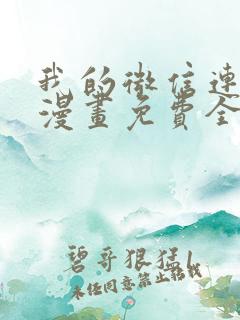 我的微信連
漫畫免費全
碧哥狠猛1
未任同意禁止轉載